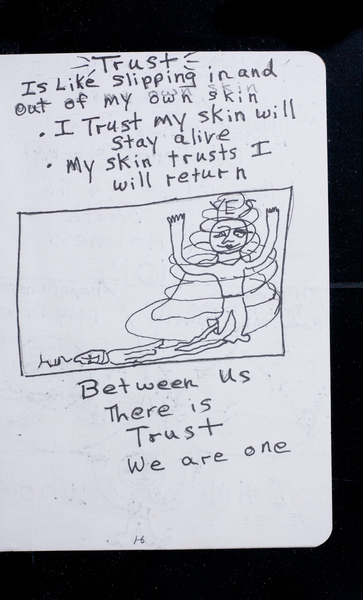 Trust
Is Like slipping in and
out of my own skin
• I Trust my skin will
stay alive
• My skin trusts I
will return
YES
Between Us
There is
Trust
We are one
16